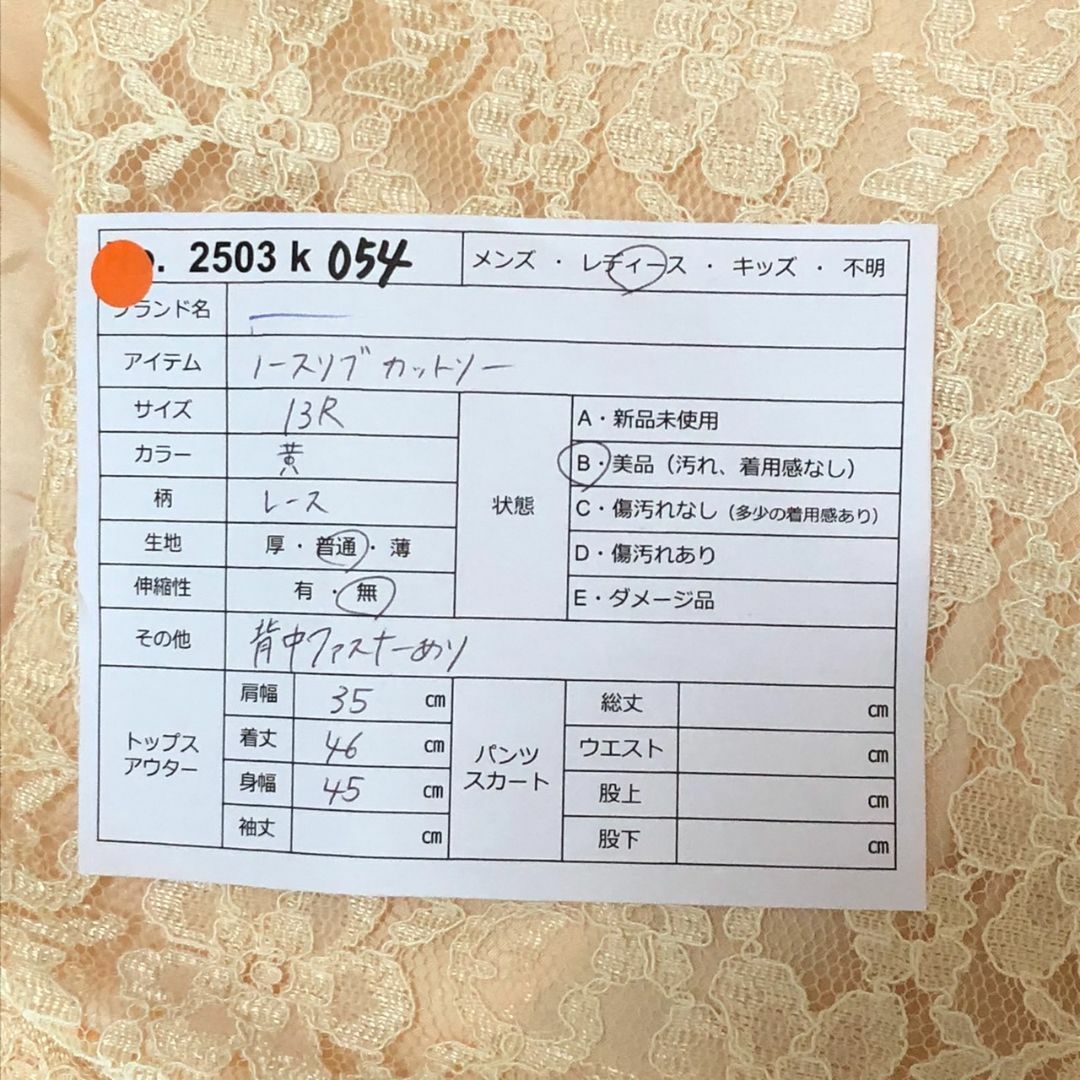 o. 2503 k 054
メンズ ・ レディース ・ キッズ ・ 不明
ブランド名
アイテム ノースリブ カットソー
サイズ 13R
カラー 黄
柄 レース
生地 厚・普通・薄
伸縮性 有・無
状態
A・新品未使用
B・美品（汚れ、着用感なし）
C・傷汚れなし（多少の着用感あり）
D・傷汚れあり
E・ダメージ品
その他 背中ファスナーあり
トップス
アウター
肩幅 35 ㎝
着丈 46 ㎝
身幅 45 ㎝
袖丈 ㎝
パンツ
スカート
総丈 ㎝
ウエスト ㎝
股上 ㎝
股下 ㎝